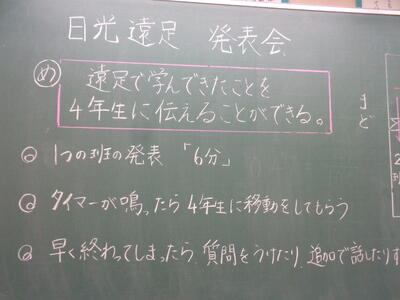 日光遠足 発表会
め 遠足で学んできたことを
4年生に伝えることができる。
1つの班の発表 「6分」
タイマーが鳴ったら4年生に移動をしてもらう
早く終わってしまったら、質問をうけたり、追加で話したりす
ま
ど
2
班